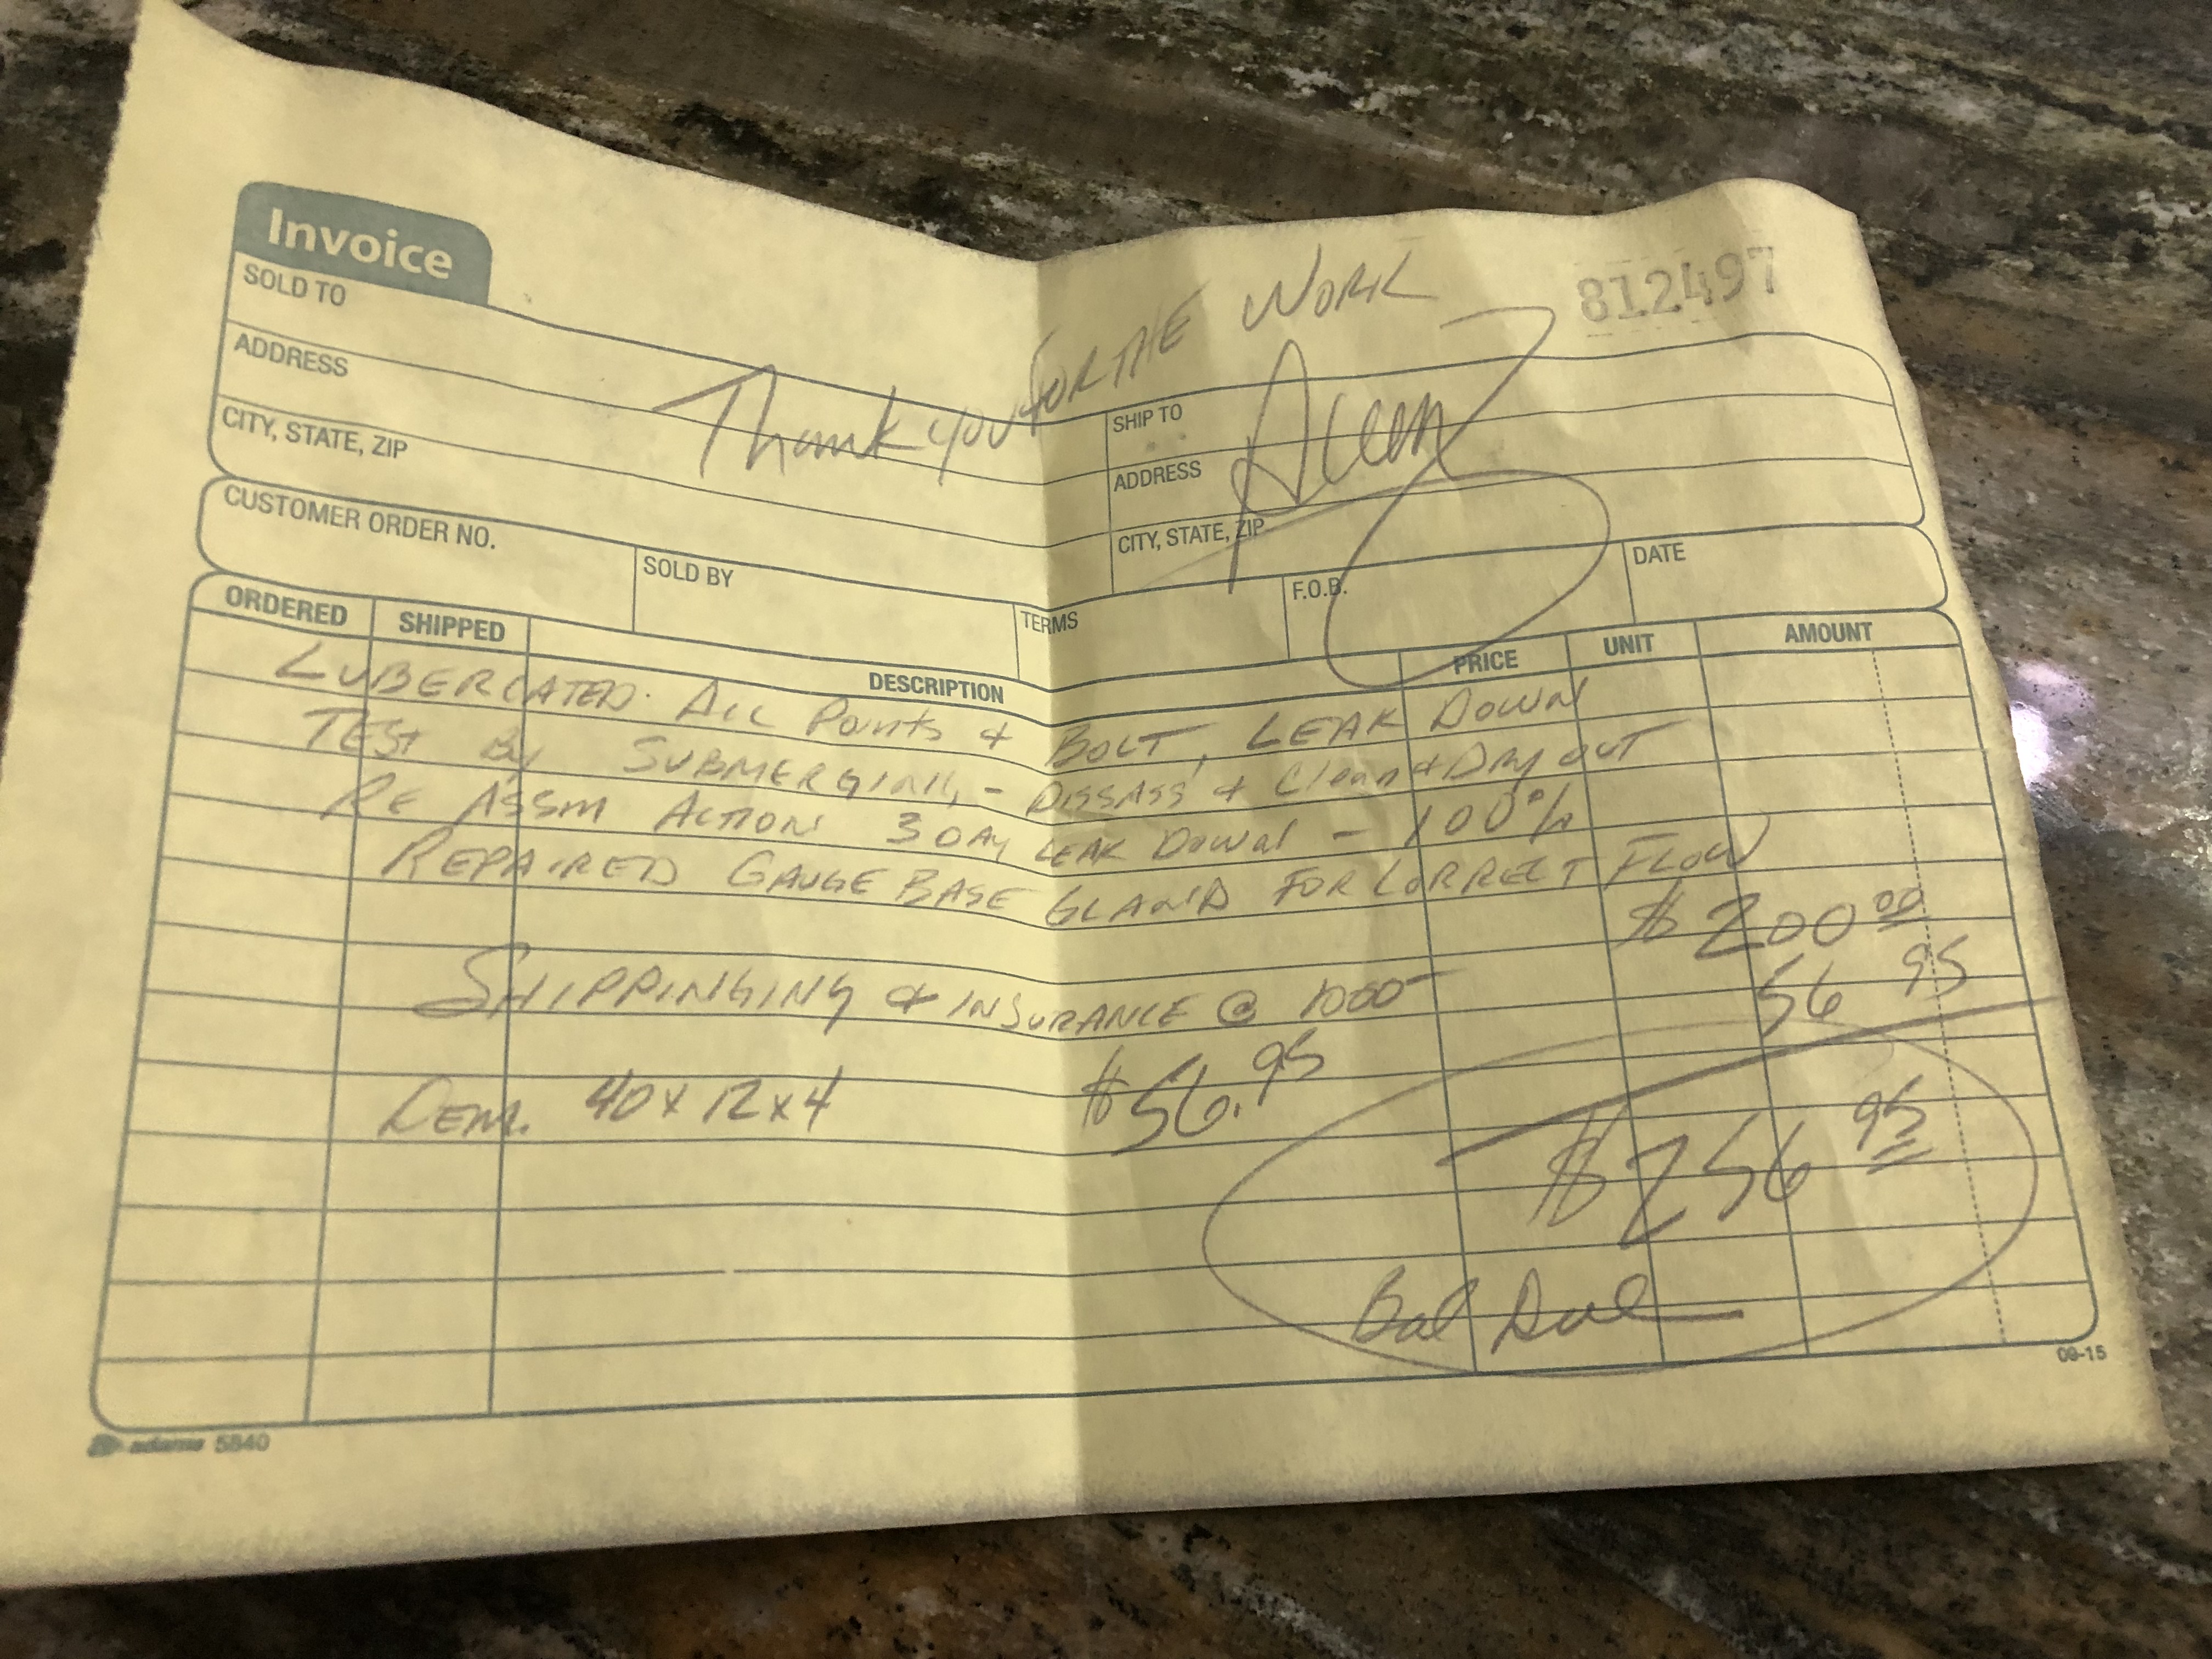 Invoice
812497
Thank you FOR THE WORK
SOLD TO
ADDRESS
CITY, STATE, ZIP
SHIP TO
ADDRESS
CITY, STATE, ZIP
CUSTOMER ORDER NO.
SOLD BY
TERMS
F.O.B.
DATE
ORDERED SHIPPED DESCRIPTION PRICE UNIT AMOUNT
LUBERCATED ALL Points & BOLT, LEAK DOWN
TEST By SUBMERGING, - DISSASS & Clean & Dry OUT
RE ASSM ACTION 3 DAY LEAK DOWN - 100%
REPAIRED GAUGE BASE GLAND FOR CORRECT FLOW
$ 200 00
SHIPPINGING & INSURANCE @ 1000- 56 95
Dem. 40 x 12 x 4 $56.95
$256 95
Bal Due
adams 5840
09-15